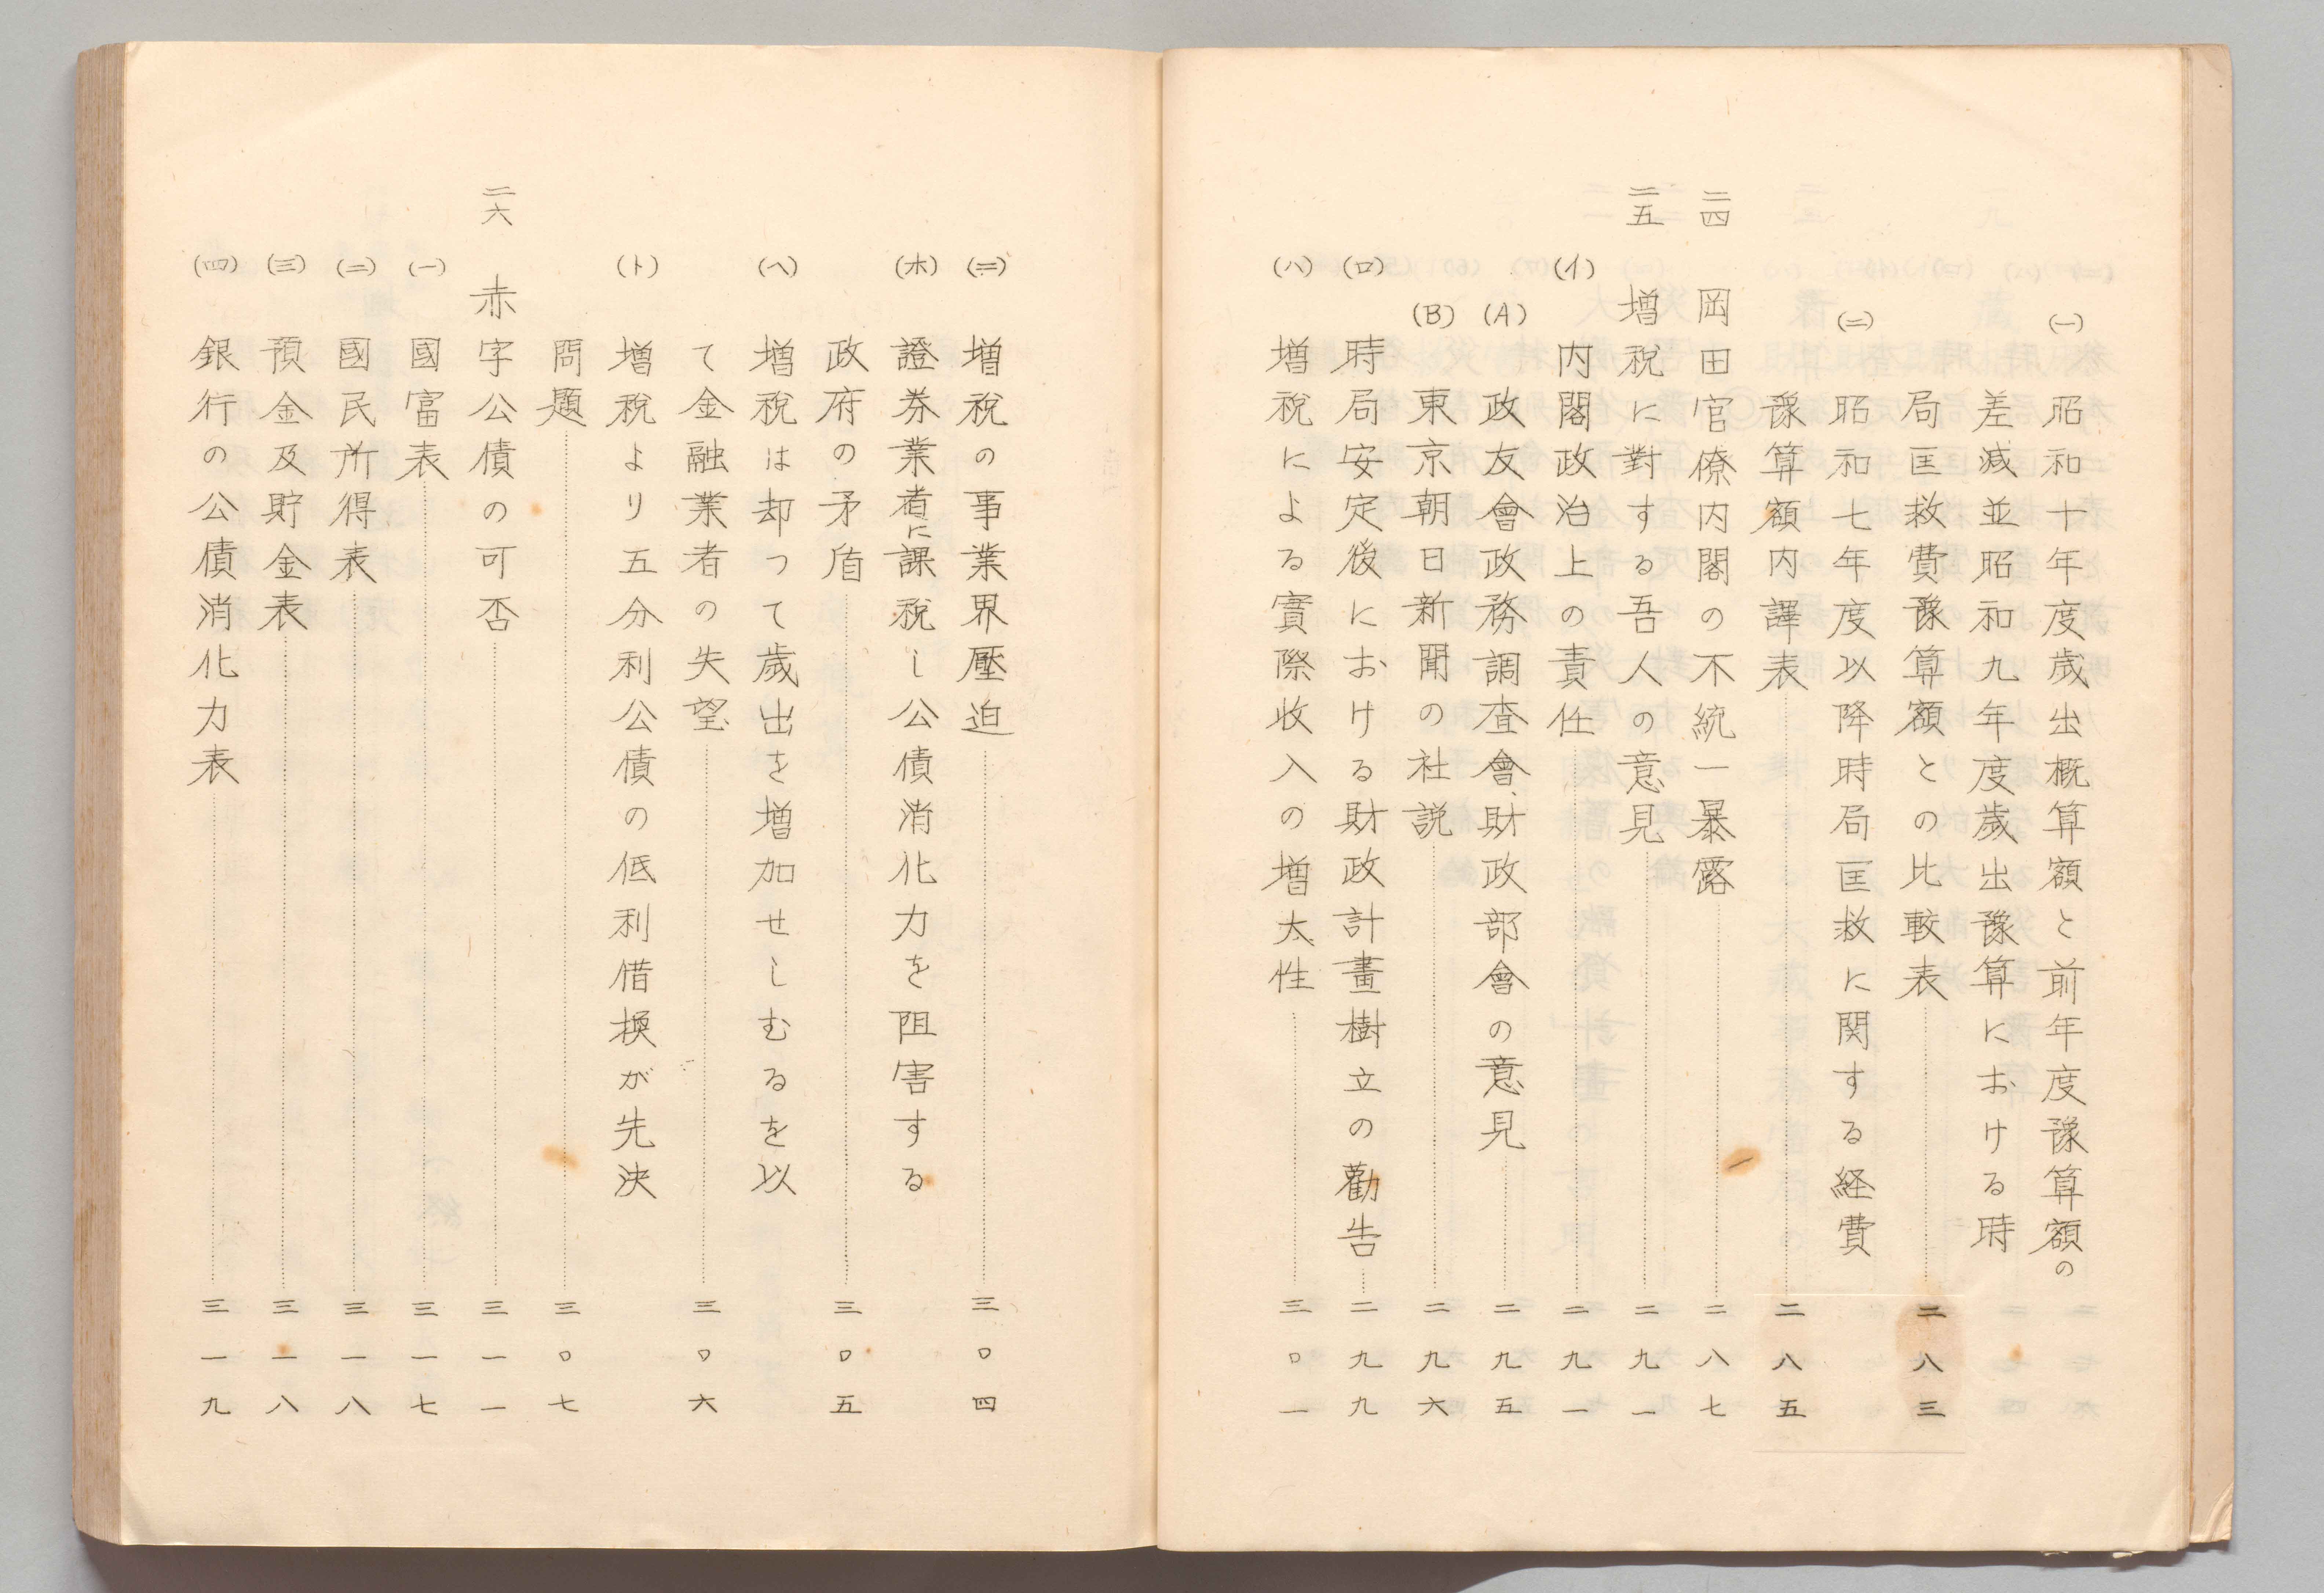 (一) 昭和十年度歳出概算額と前年度豫算額の
差減並昭和九年度歳出豫算における時
局匡救費豫算額との比較表 二八三
(二) 昭和七年度以降時局匡救に関する経費
豫算額内譯表 二八五
二四 岡田官僚内閣の不統一暴露 二八七
二五 増税に對する吾人の意見 二九一
(イ) 内閣政治上の責任 二九一
(A) 政友會政務調査會財政部會の意見 二九五
(B) 東京朝日新聞の社説 二九六
(ロ) 時局安定後における財政計畫樹立の勸告 二九九
(ハ) 増税による實際收入の増大性 三〇一
(ニ) 増税の事業界壓迫 三〇四
(ホ) 證券業者に課税し公債消化力を阻害する
政府の矛盾 三〇五
(ヘ) 増税は却つて歳出を増加せしむるを以
て金融業者の失望 三〇六
(ト) 増税より五分利公債の低利借換が先決
問題 三〇七
二六 赤字公債の可否 三一一
(一) 國富表 三一七
(二) 國民所得表 三一八
(三) 預金及貯金表 三一八
(四) 銀行の公債消化力表 三一九